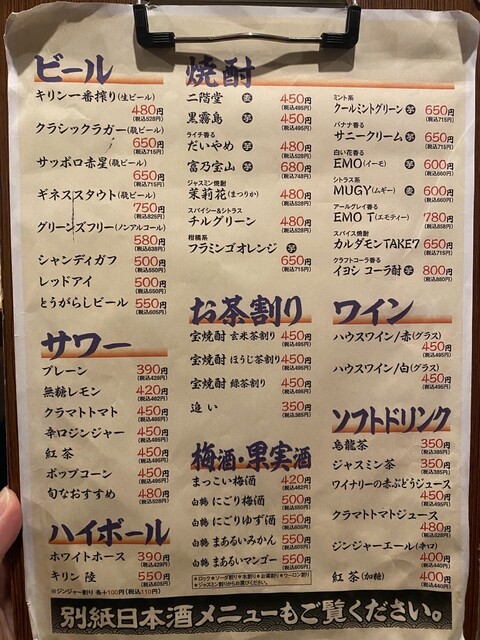 ビール
キリン一番搾り(生ビール)
480円
(税込528円)
クラシックラガー(瓶ビール)
650円
(税込715円)
サッポロ赤星(瓶ビール)
650円
(税込715円)
ギネススタウト(瓶ビール)
750円
(税込825円)
グリーンズフリー(ノンアルコール)
580円
(税込638円)
シャンディガフ 500円
(税込550円)
レッドアイ 500円
(税込550円)
とうがらしビール 550円
(税込605円)
サワー
プレーン 390円
(税込429円)
無糖レモン 420円
(税込462円)
クラマトトマト 450円
(税込495円)
辛口ジンジャー 450円
(税込495円)
紅茶 450円
(税込495円)
ポップコーン 450円
(税込495円)
旬なおすすめ 480円
(税込528円)
ハイボール
ホワイトホース 390円
(税込429円)
キリン 陸 550円
(税込605円)
※ジンジャー割り 各+100円(税込110円)
焼酎
二階堂 麦 450円
(税込495円)
黒霧島 芋 450円
(税込495円)
ライチ香る
だいやめ 芋 480円
(税込528円)
富乃宝山 芋 680円
(税込748円)
ジャスミン焼酎
茉莉花(まつりか) 480円
(税込528円)
スパイシー&シトラス
チルグリーン 480円
(税込528円)
柑橘系
フラミンゴオレンジ 芋
650円
(税込715円)
お茶割り
宝焼酎 玄米茶割り 450円
(税込495円)
宝焼酎 ほうじ茶割り 450円
(税込495円)
宝焼酎 緑茶割り 450円
(税込495円)
追い 350円
(税込385円)
梅酒・果実酒
まっこい梅酒 420円
(税込462円)
白鶴 にごり梅酒 500円
(税込550円)
白鶴 にごりゆず酒 550円
(税込605円)
白鶴 まあるいみかん 550円
(税込605円)
白鶴 まあるいマンゴー 550円
(税込605円)
※ロック※ソーダ割り※水割り※お湯割り※ウーロン割り
※ジャスミン割りからお選びください。
ミント系
クールミントグリーン 芋 650円
(税込715円)
バナナ香る
サニークリーム 芋 650円
(税込715円)
白い花香る
EMO(イーモ) 芋 600円
(税込660円)
シトラス系
MUGY(ムギー) 麦 600円
(税込660円)
アールグレイ香る
EMO T(エモティー) 780円
(税込858円)
スパイス焼酎
カルダモン TAKE7 650円
(税込715円)
クラフトコーラ香る
イヨシ コーラ酎 芋 800円
(税込880円)
ワイン
ハウスワイン/赤(グラス)
450円
(税込495円)
ハウスワイン/白(グラス)
450円
(税込495円)
ソフトドリンク
烏龍茶 350円
(税込385円)
ジャスミン茶 350円
(税込385円)
ワイナリーの赤ぶどうジュース
450円
(税込495円)
クラマトトマトジュース
480円
(税込528円)
ジンジャーエール(辛口)
400円
(税込440円)
紅茶(加糖) 400円
(税込440円)
別紙日本酒メニューもご覧ください。